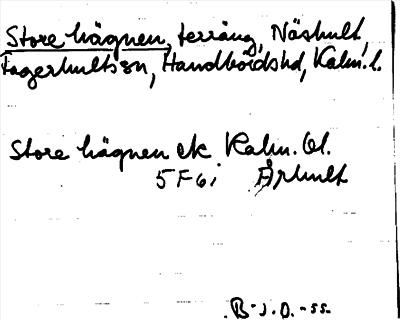 Store hägnen, terräng, Näshult,
Fagerhults sn, Handbörds hd, Kalm. l.
Store hägnen ek. Kalm. bl.
5 F 6 i Århult
B. J. O. -55-